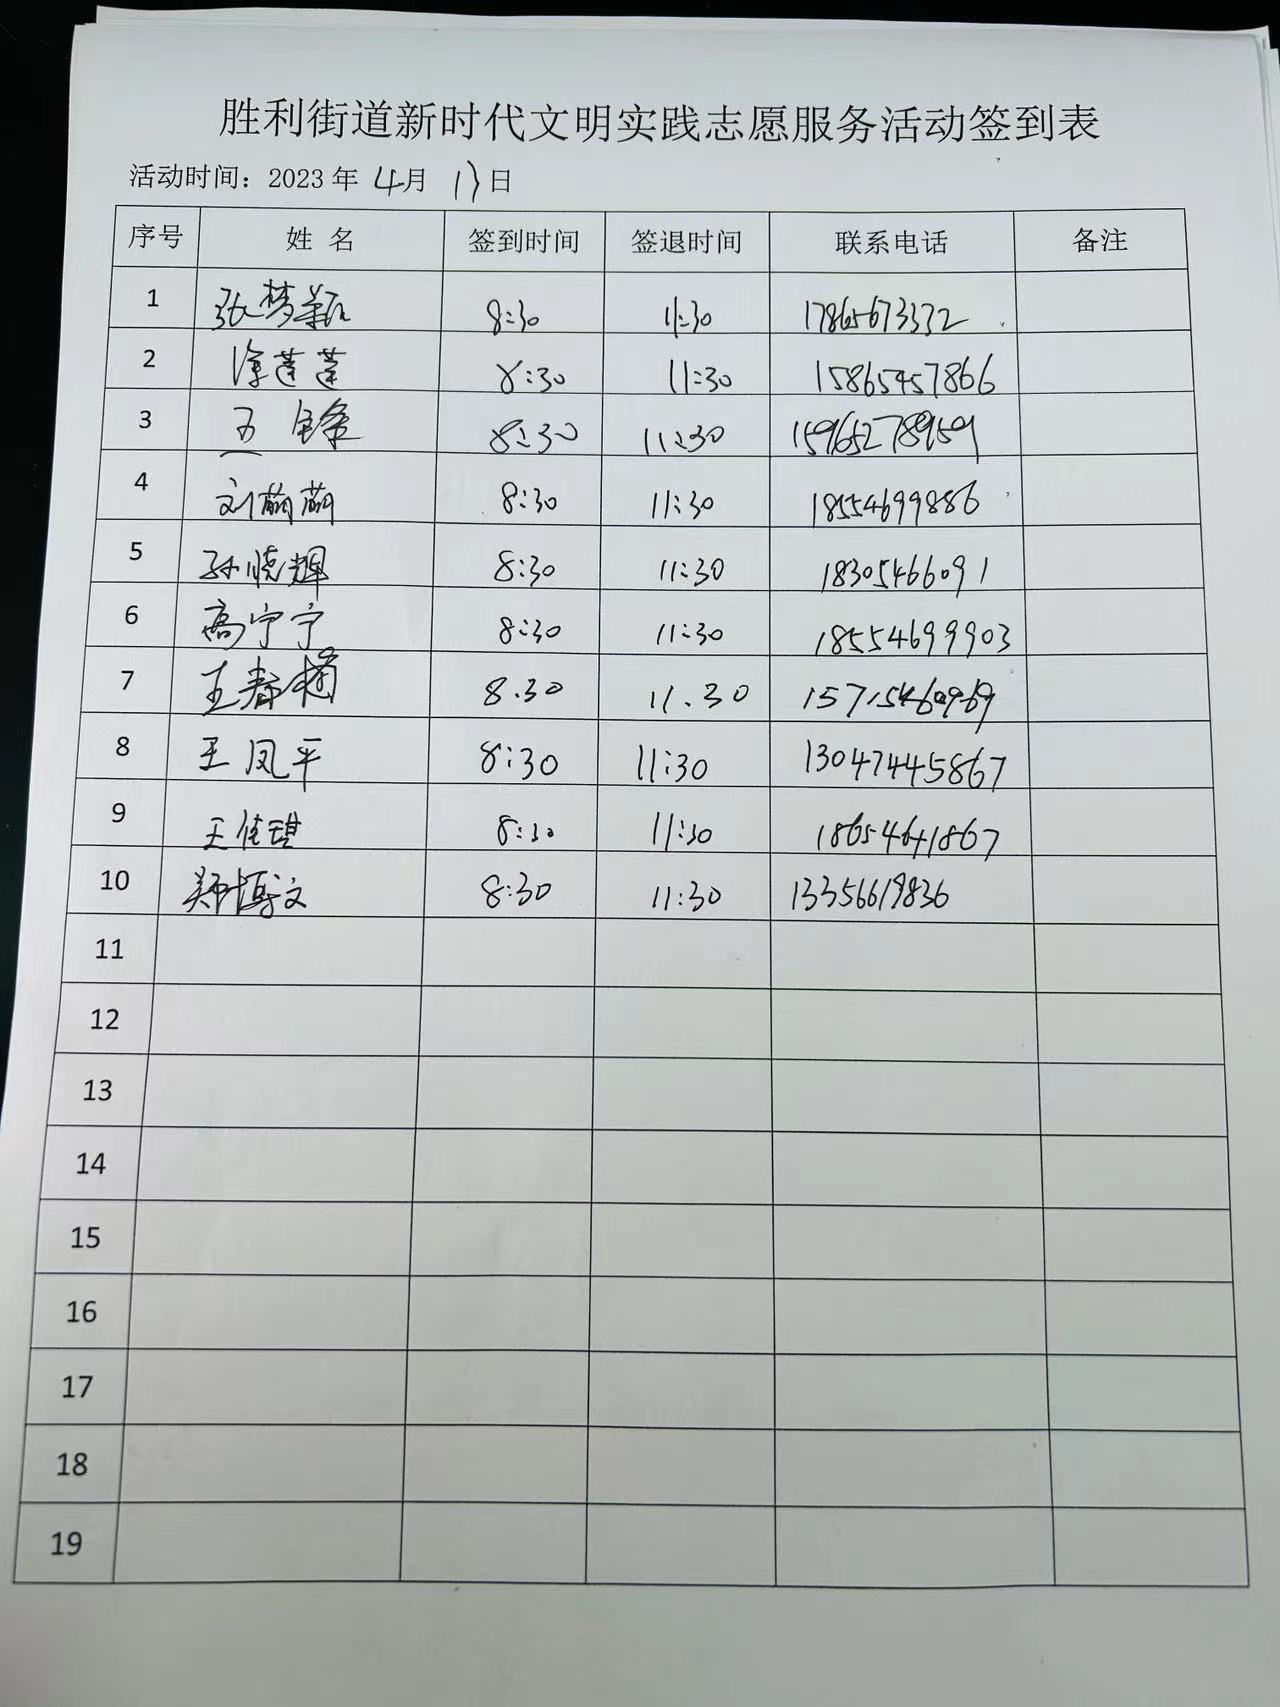 胜利街道新时代文明实践志愿服务活动签到表
活动时间：2023 年 4月 13日
序号 姓 名 签到时间 签退时间 联系电话 备注
1 张梦 8:30 11:30 17865673332
2 莲莲 8:30 11:30 15865457866
3 王锋 8:30 11:30 15965278959
4 刘萌萌 8:30 11:30 18554699886
5 孙晓辉 8:30 11:30 18305466091
6 高宁宁 8:30 11:30 18554699903
7 王春梅 8.30 11.30
8 王凤平 8:30 11:30 13047445867
9 王佳琪 8:30 11:30 18654641867
10 郑博文 8:30 11:30 13356619836
11
12
13
14
15
16
17
18
19